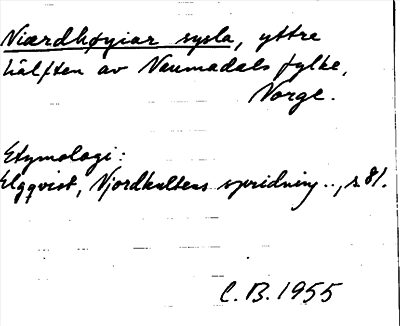 Niærdhøyiar sysla, yttre
hälften av Naumadals fylke,
Norge.
Etymologi:
Elgqvist, Njordkultens spridning.., s. 81.
C. B. 1955